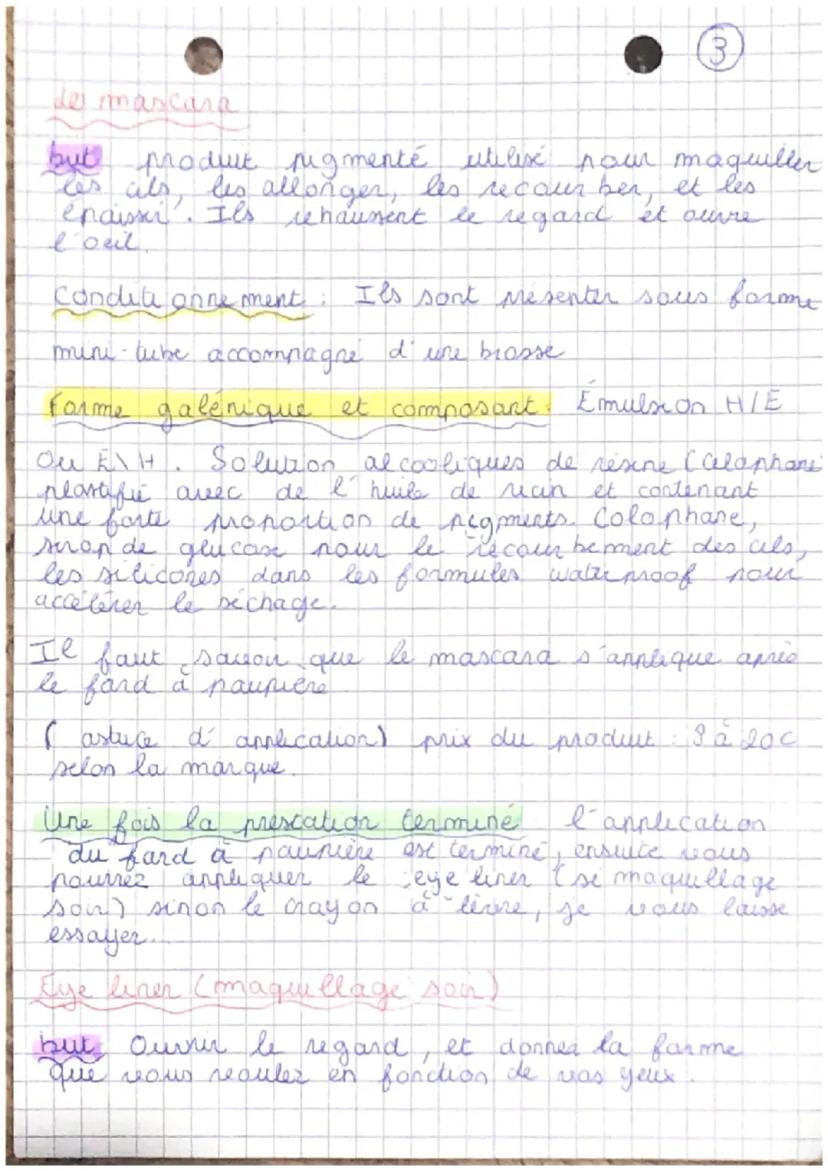 3
Les mascara
but produit pigmenté utilisé pour maquiller
les cils, les allonger, les recourber, et les
épaissir. Ils rehaussent le regard et ouvre
l'oeil.
Conditionnement : Ils sont présenter sous forme
mini-tube accompagné d'une brosse
Forme galénique et composant : Émulsion H/E
Ou E\H. Solution alcooliques de résine (Colophane
plastifié avec de l'huile de ricin et contenant
une forte proportion de pigments. Colophane,
sirop de glucose pour le recourbement des cils,
les silicones dans les formules waterproof pour
accélérer le séchage.
Il faut savoir que le mascara s'applique après
le fard à paupière
(astuce d'application) prix du produit : 9 à 20€
selon la marque.
Une fois la prestation terminé l'application
du fard à paupière est terminé, ensuite vous
pourrez appliquer le eye liner (si maquillage
soir) sinon le crayon à lèvre, je vous laisse
essayer...
Eye liner (maquillage soir)
but Ouvrir le regard, et donner la forme
que vous voulez en fonction de vos yeux.